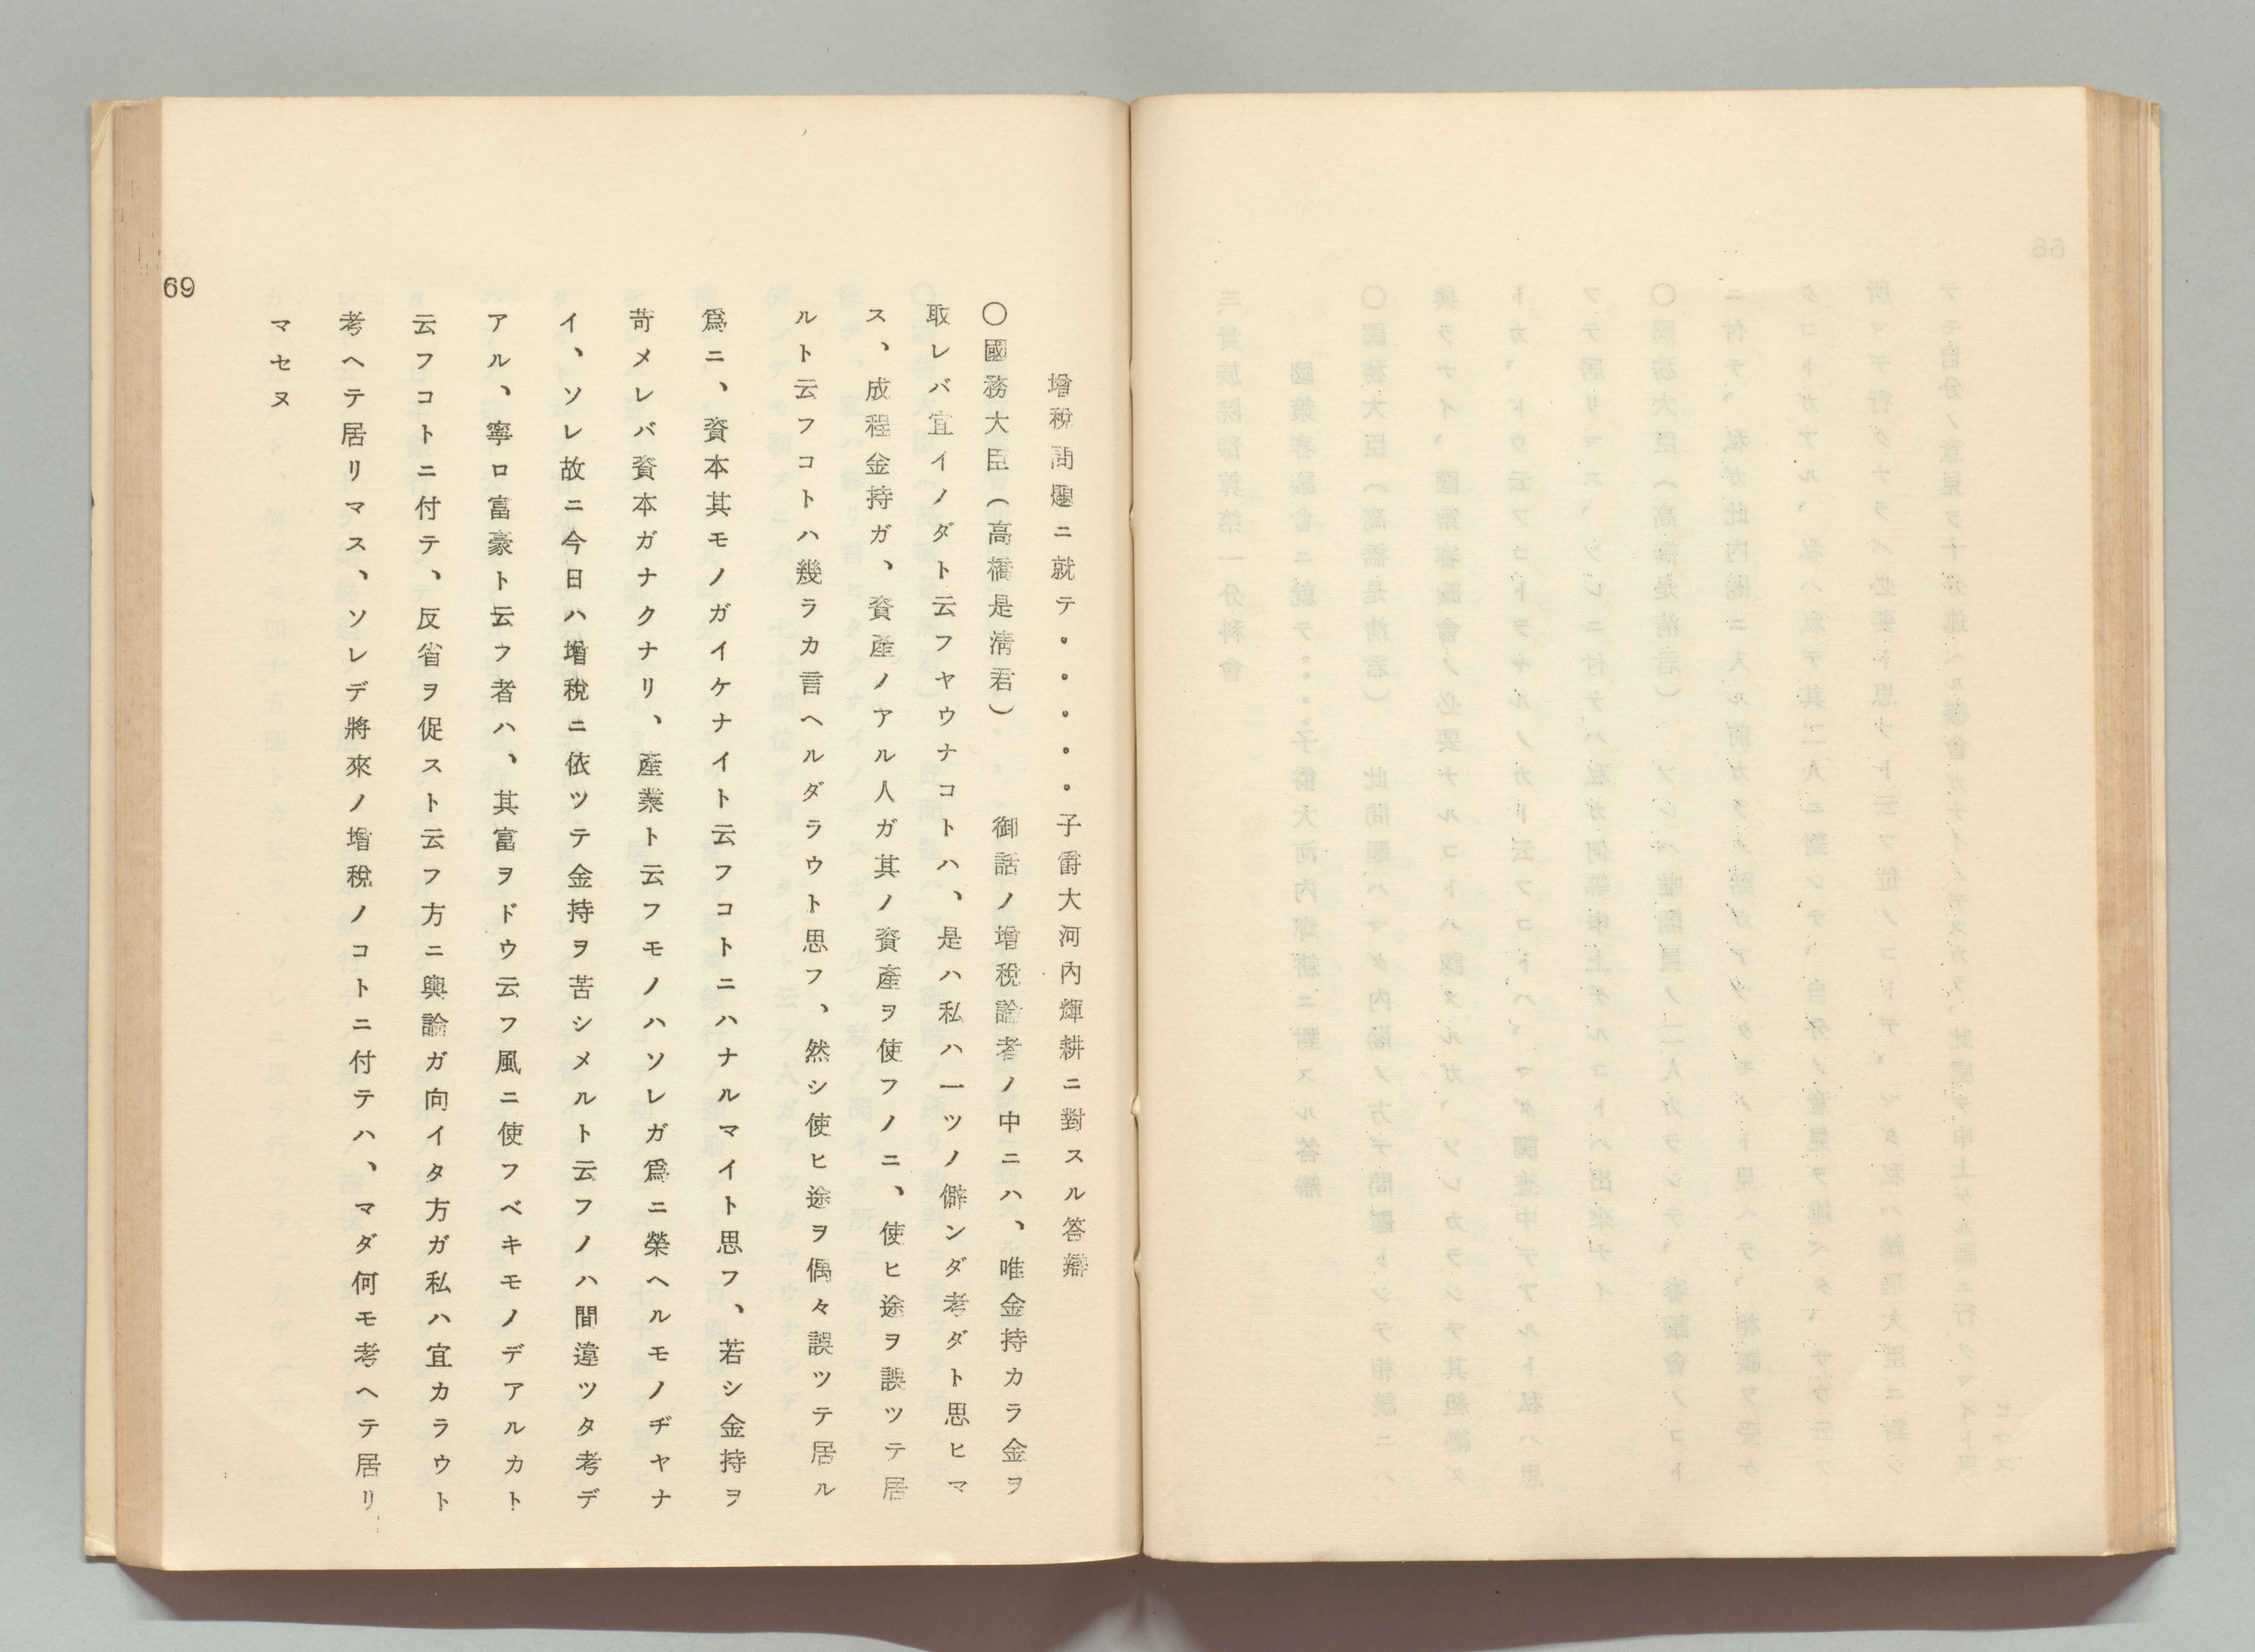 增稅問題ニ就テ・・・・・子爵大河內輝耕ニ對スル答辯
〇國務大臣(高橋是淸君) 御話ノ增稅論者ノ中ニハ、唯金持カラ金ヲ
取レバ宜イノダト云フヤウナコトハ、是ハ私ハ一ツノ僻ンダ考ダト思ヒマ
ス、成程金持ガ、資產ノアル人ガ其ノ資產ヲ使フノニ、使ヒ途ヲ誤ツテ居
ルト云フコトハ幾ラカ言ヘルダラウト思フ、然シ使ヒ途ヲ偶々誤ツテ居ル
爲ニ、資本其モノガイケナイト云フコトニハナルマイト思フ、若シ金持ヲ
苛メレバ資本ガナクナリ、產業ト云フモノハソレガ爲ニ榮ヘルモノヂヤナ
イ、ソレ故ニ今日ハ增稅ニ依ツテ金持ヲ苦シメルト云フノハ間違ツタ考デ
アル、寧ロ富豪ト云フ者ハ、其富ヲドウ云フ風ニ使フベキモノデアルカト
云フコトニ付テ、反省ヲ促スト云フ方ニ輿論ガ向イタ方ガ私ハ宜カラウト
考ヘテ居リマス、ソレデ將來ノ增稅ノコトニ付テハ、マダ何モ考ヘテ居リ
マセヌ
69